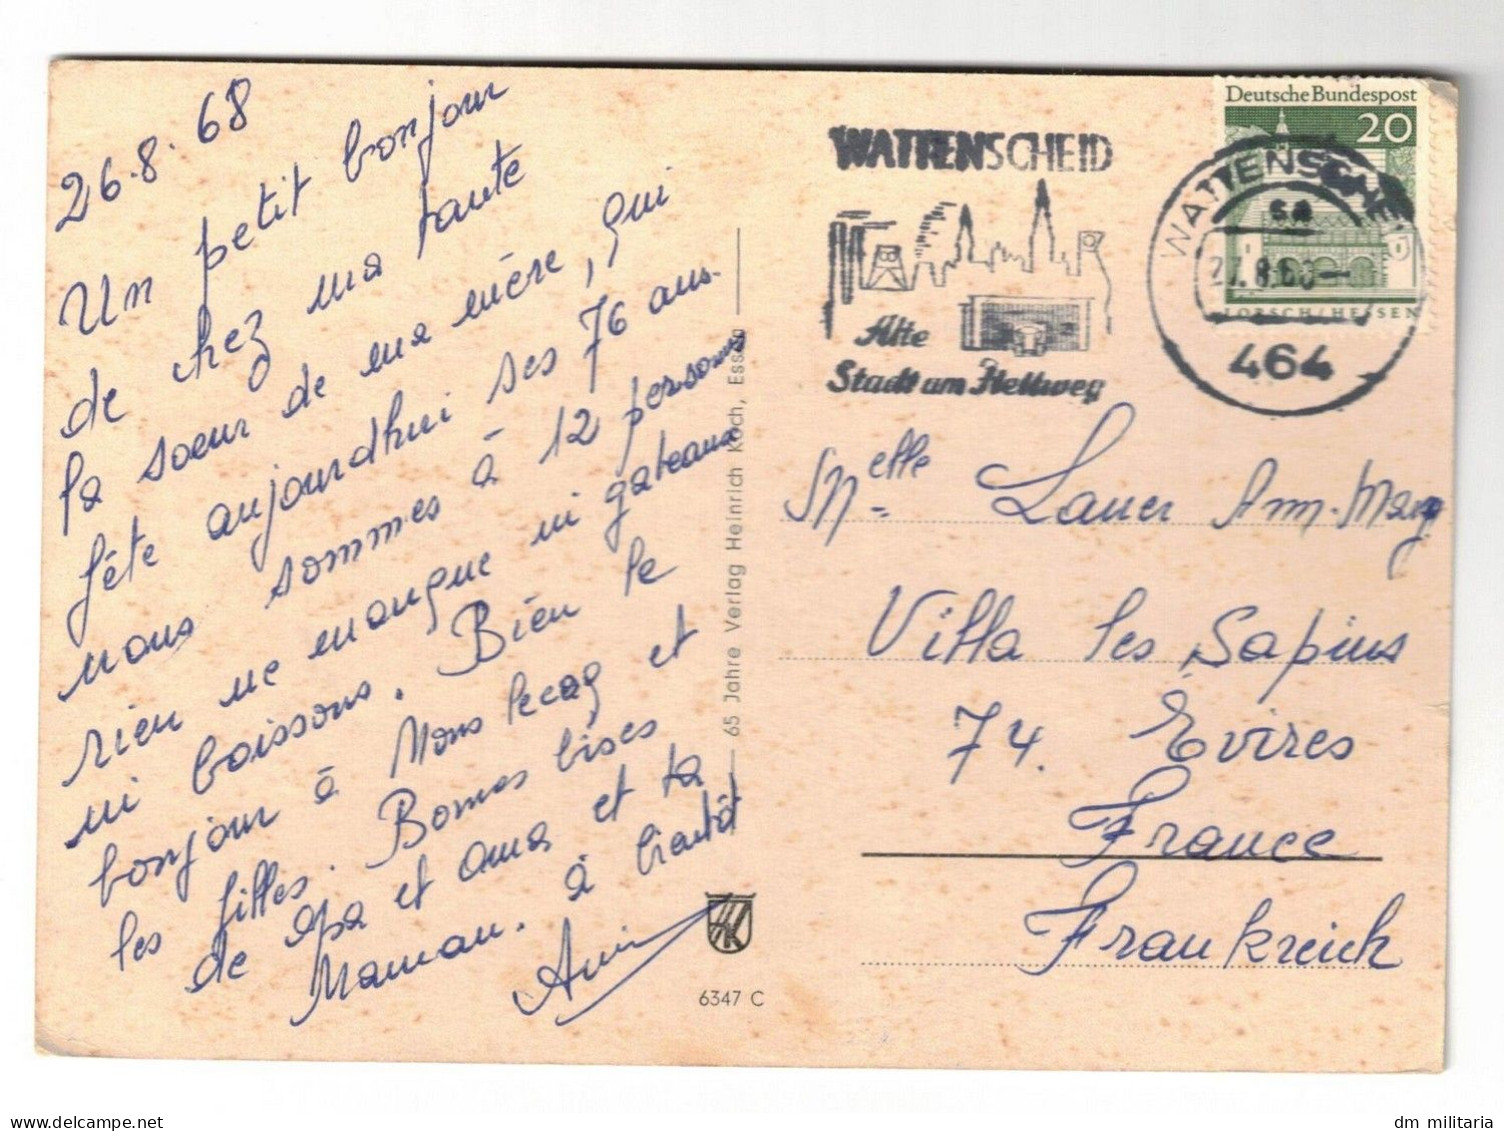 26.8.68
Un petit bonjour
de chez ma tante
la soeur de ma mère, qui
fête aujourdhui ses 76 ans.
nous sommes à 12 personnes
rien ne manque ni gateaux
ni boissons. Bien le
bonjour à Mons et
les filles. Bonnes bises
de opa et oma et ta
Maman. à bientôt
65 Jahre Verlag Heinrich Koch, Essen
6347 C
WATTENSCHEID
Alte
Stadt am Hellweg
Deutsche Bundespost
20
LORSCH/HESSEN
WATTENSCHEID
464
Melle Lauer Ann-Mary
Villa les Sapins
74. Evires
France
Frankreich
dm militaria
www.delcampe.net